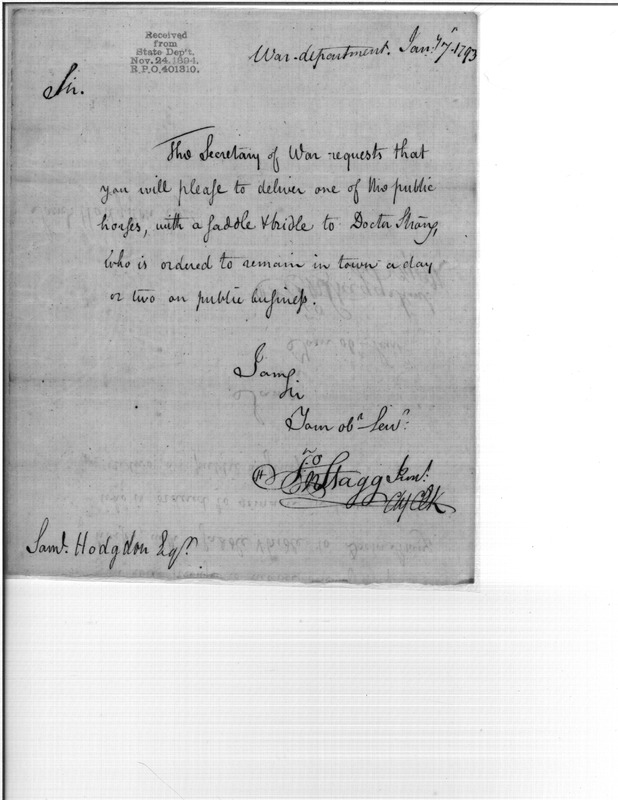 Received
from
State Dep't.
Nov. 24, 1894.
R.P.O. 401310.
War-department. Jan.y 7th 1793
Sir.
The Secretary of War requests that
you will please to deliver one of the public
horses, with a saddle & bridle to Doctor Strong,
who is ordered to remain in town a day
or two on public business.
I am
Sir
Your obt. Servt.
Jno Stagg Junr.
Saml. Hodgdon Esqr.